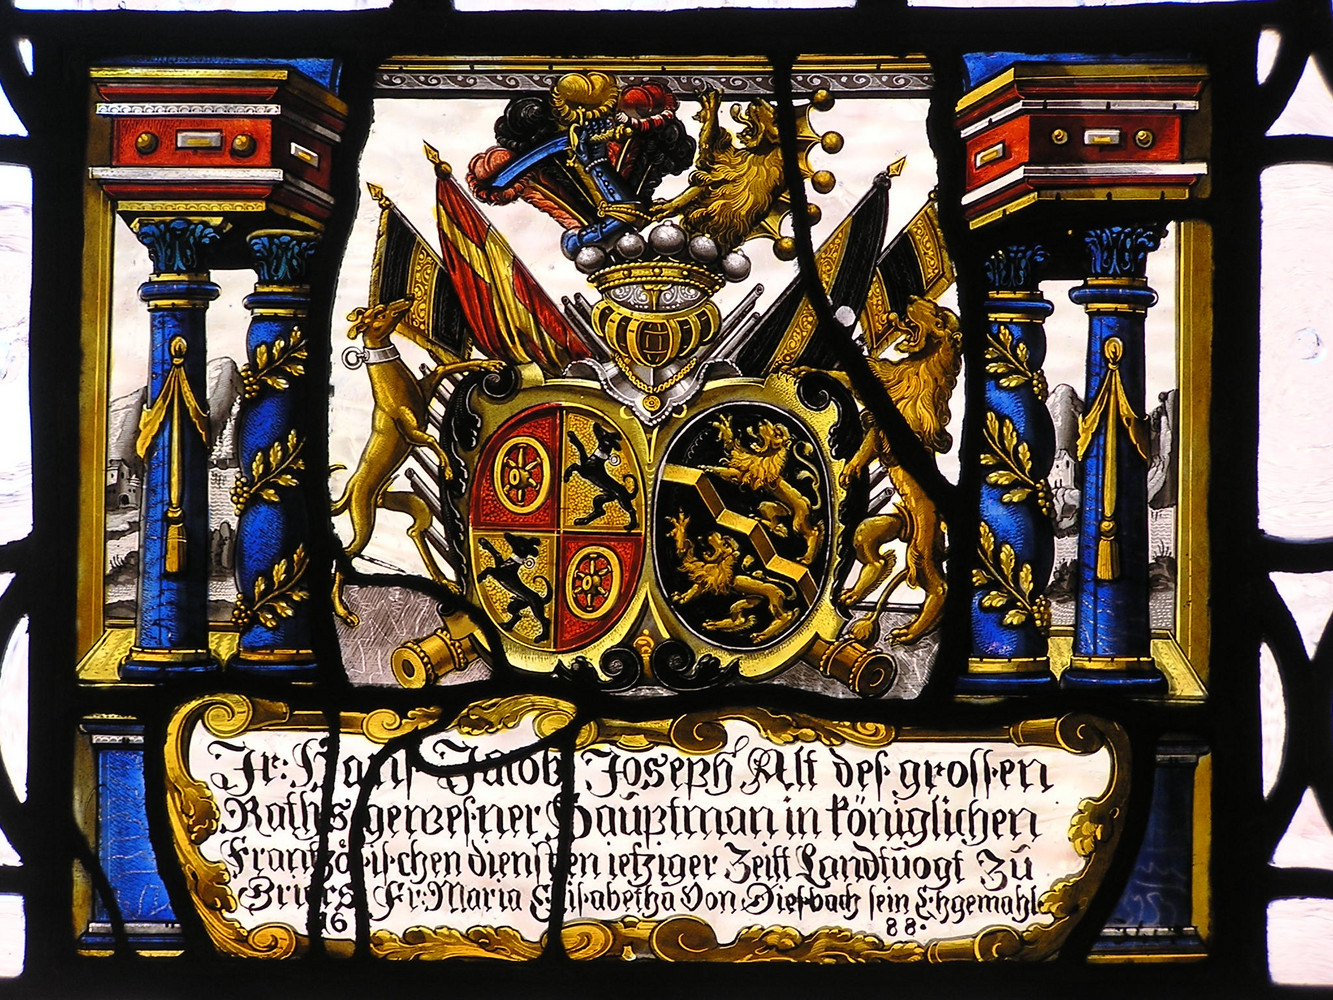 Jr: Hans Jacob Joseph Alt des grossen
Raths gewesner Hauptman in königlichen
Frantzösischen diensten ietziger Zeitt Landtuogt Zů
Fr: Maria Elisabetha Von Diesbach sein Ehgemahl
16 88.